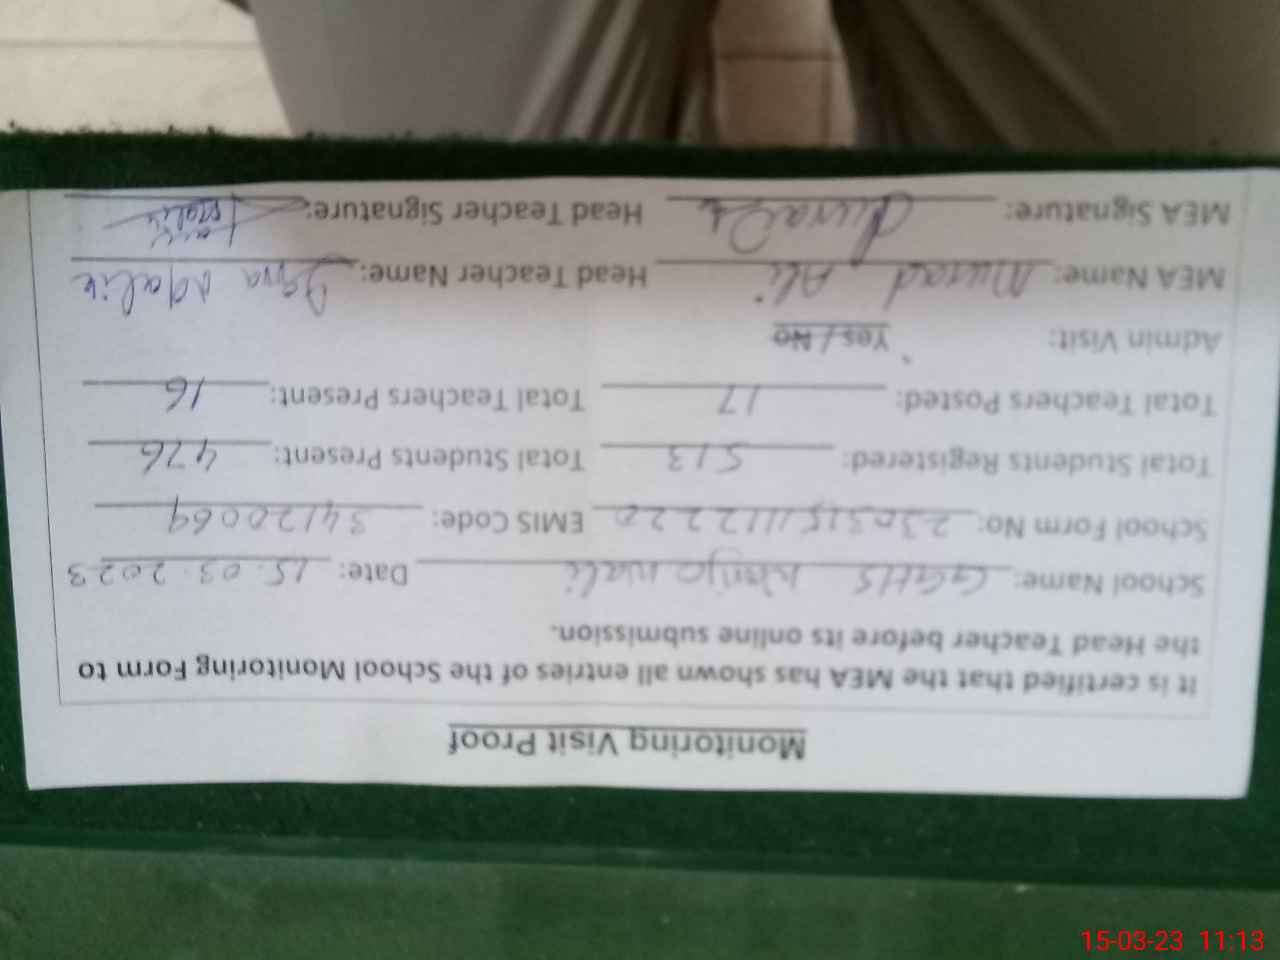 Monitoring Visit Proof
It is certified that the MEA has shown all entries of the School Monitoring Form to
the Head Teacher before its online submission.
School Name: GGHS Wanjowali Date: 15.03.2023
School Form No: EMIS Code: 34120069
Total Students Registered: 513 Total Students Present: 476
Total Teachers Posted: 17 Total Teachers Present: 16
Admin Visit: Yes / No
MEA Name: Murad Ali Head Teacher Name: Malik
MEA Signature: Head Teacher Signature:
15-03-23 11:13